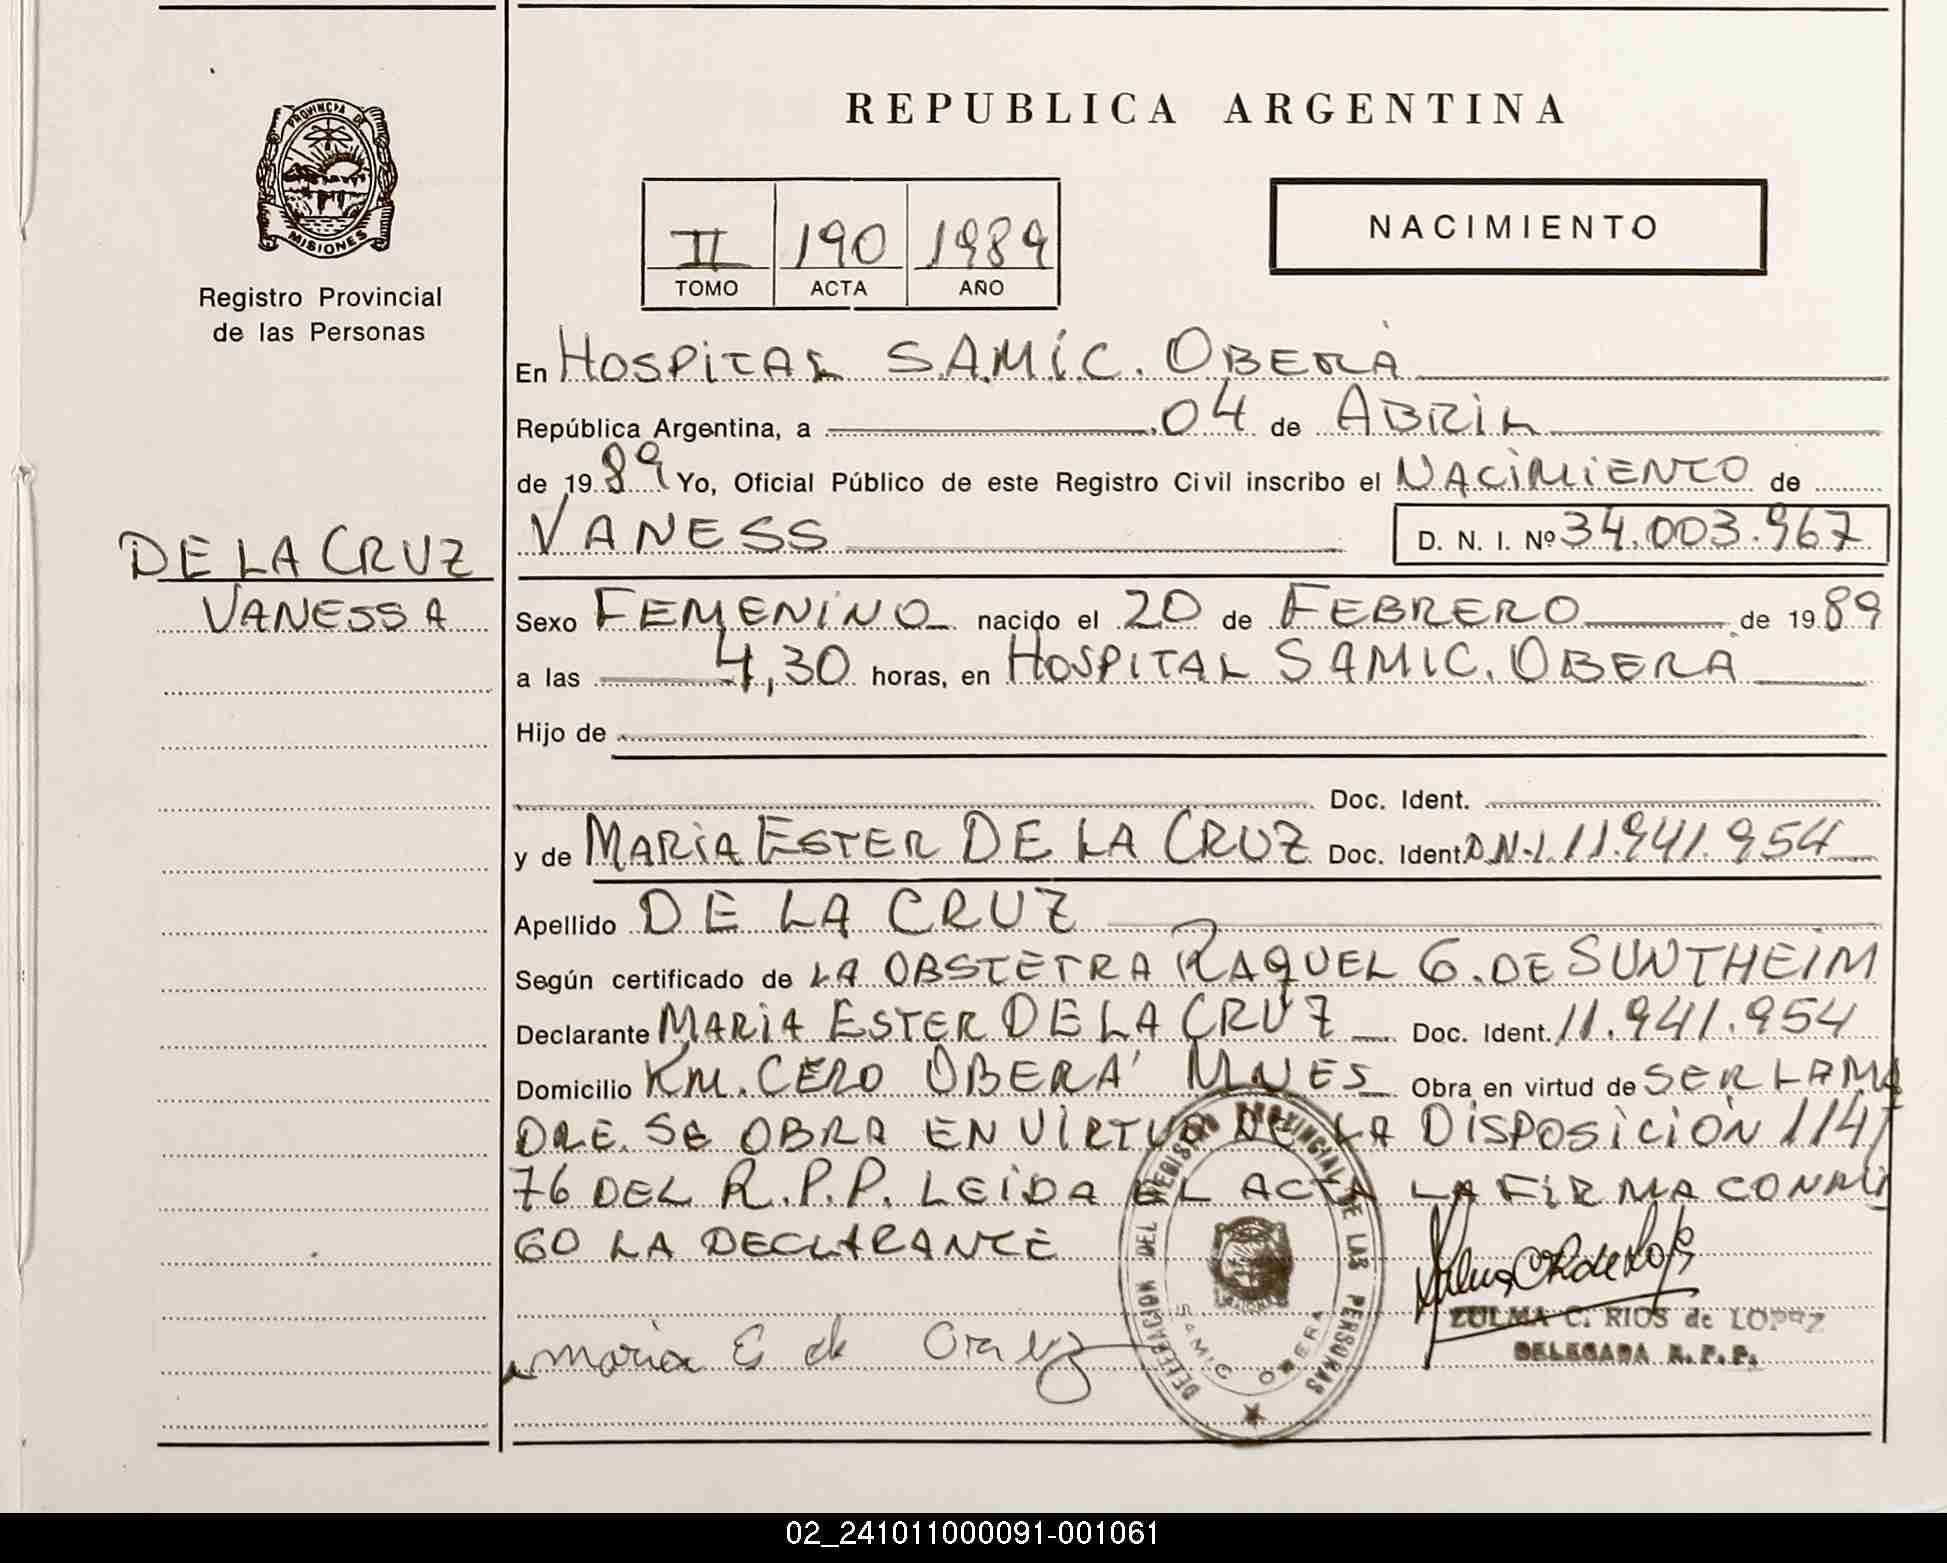 PROVINCIA DE
MISIONES
Registro Provincial
de las Personas
DE LA CRUZ
VANESSA
REPUBLICA ARGENTINA
II 190 1989
TOMO ACTA AÑO
NACIMIENTO
En HOSPITAL S.A.M.I.C. OBERÁ
República Argentina, a 04 de ABRIL
de 1989 Yo, Oficial Público de este Registro Civil inscribo el NACIMIENTO de
VANESS D. N. I. Nº 34.003.967
Sexo FEMENINO nacido el 20 de FEBRERO de 1989
a las 4,30 horas, en HOSPITAL SAMIC. OBERÁ
Hijo de
Doc. Ident.
y de MARIA ESTER DE LA CRUZ Doc. Ident D.N.I. 11.941.954
Apellido DE LA CRUZ
Según certificado de LA OBSTETRA RAQUEL G. DE SUNTHEIM
Declarante MARIA ESTER DE LA CRUZ Doc. Ident. 11.941.954
Domicilio KM. CERO OBERA' MNES Obra en virtud de SER LA MA
DRE. SE OBRA EN VIRTUD DE LA DISPOSICIÓN 114/
76 DEL R.P.P. LEIDA EL ACTA LA FIRMA CONMI
GO LA DECLARANTE
Maria E de Cruz
DELEGACION DEL REGISTRO PROVINCIAL DE LAS PERSONAS
SAMIC OBERA
ZULMA C. RIOS de LOPEZ
DELEGADA R. P. P.
02_241011000091-001061